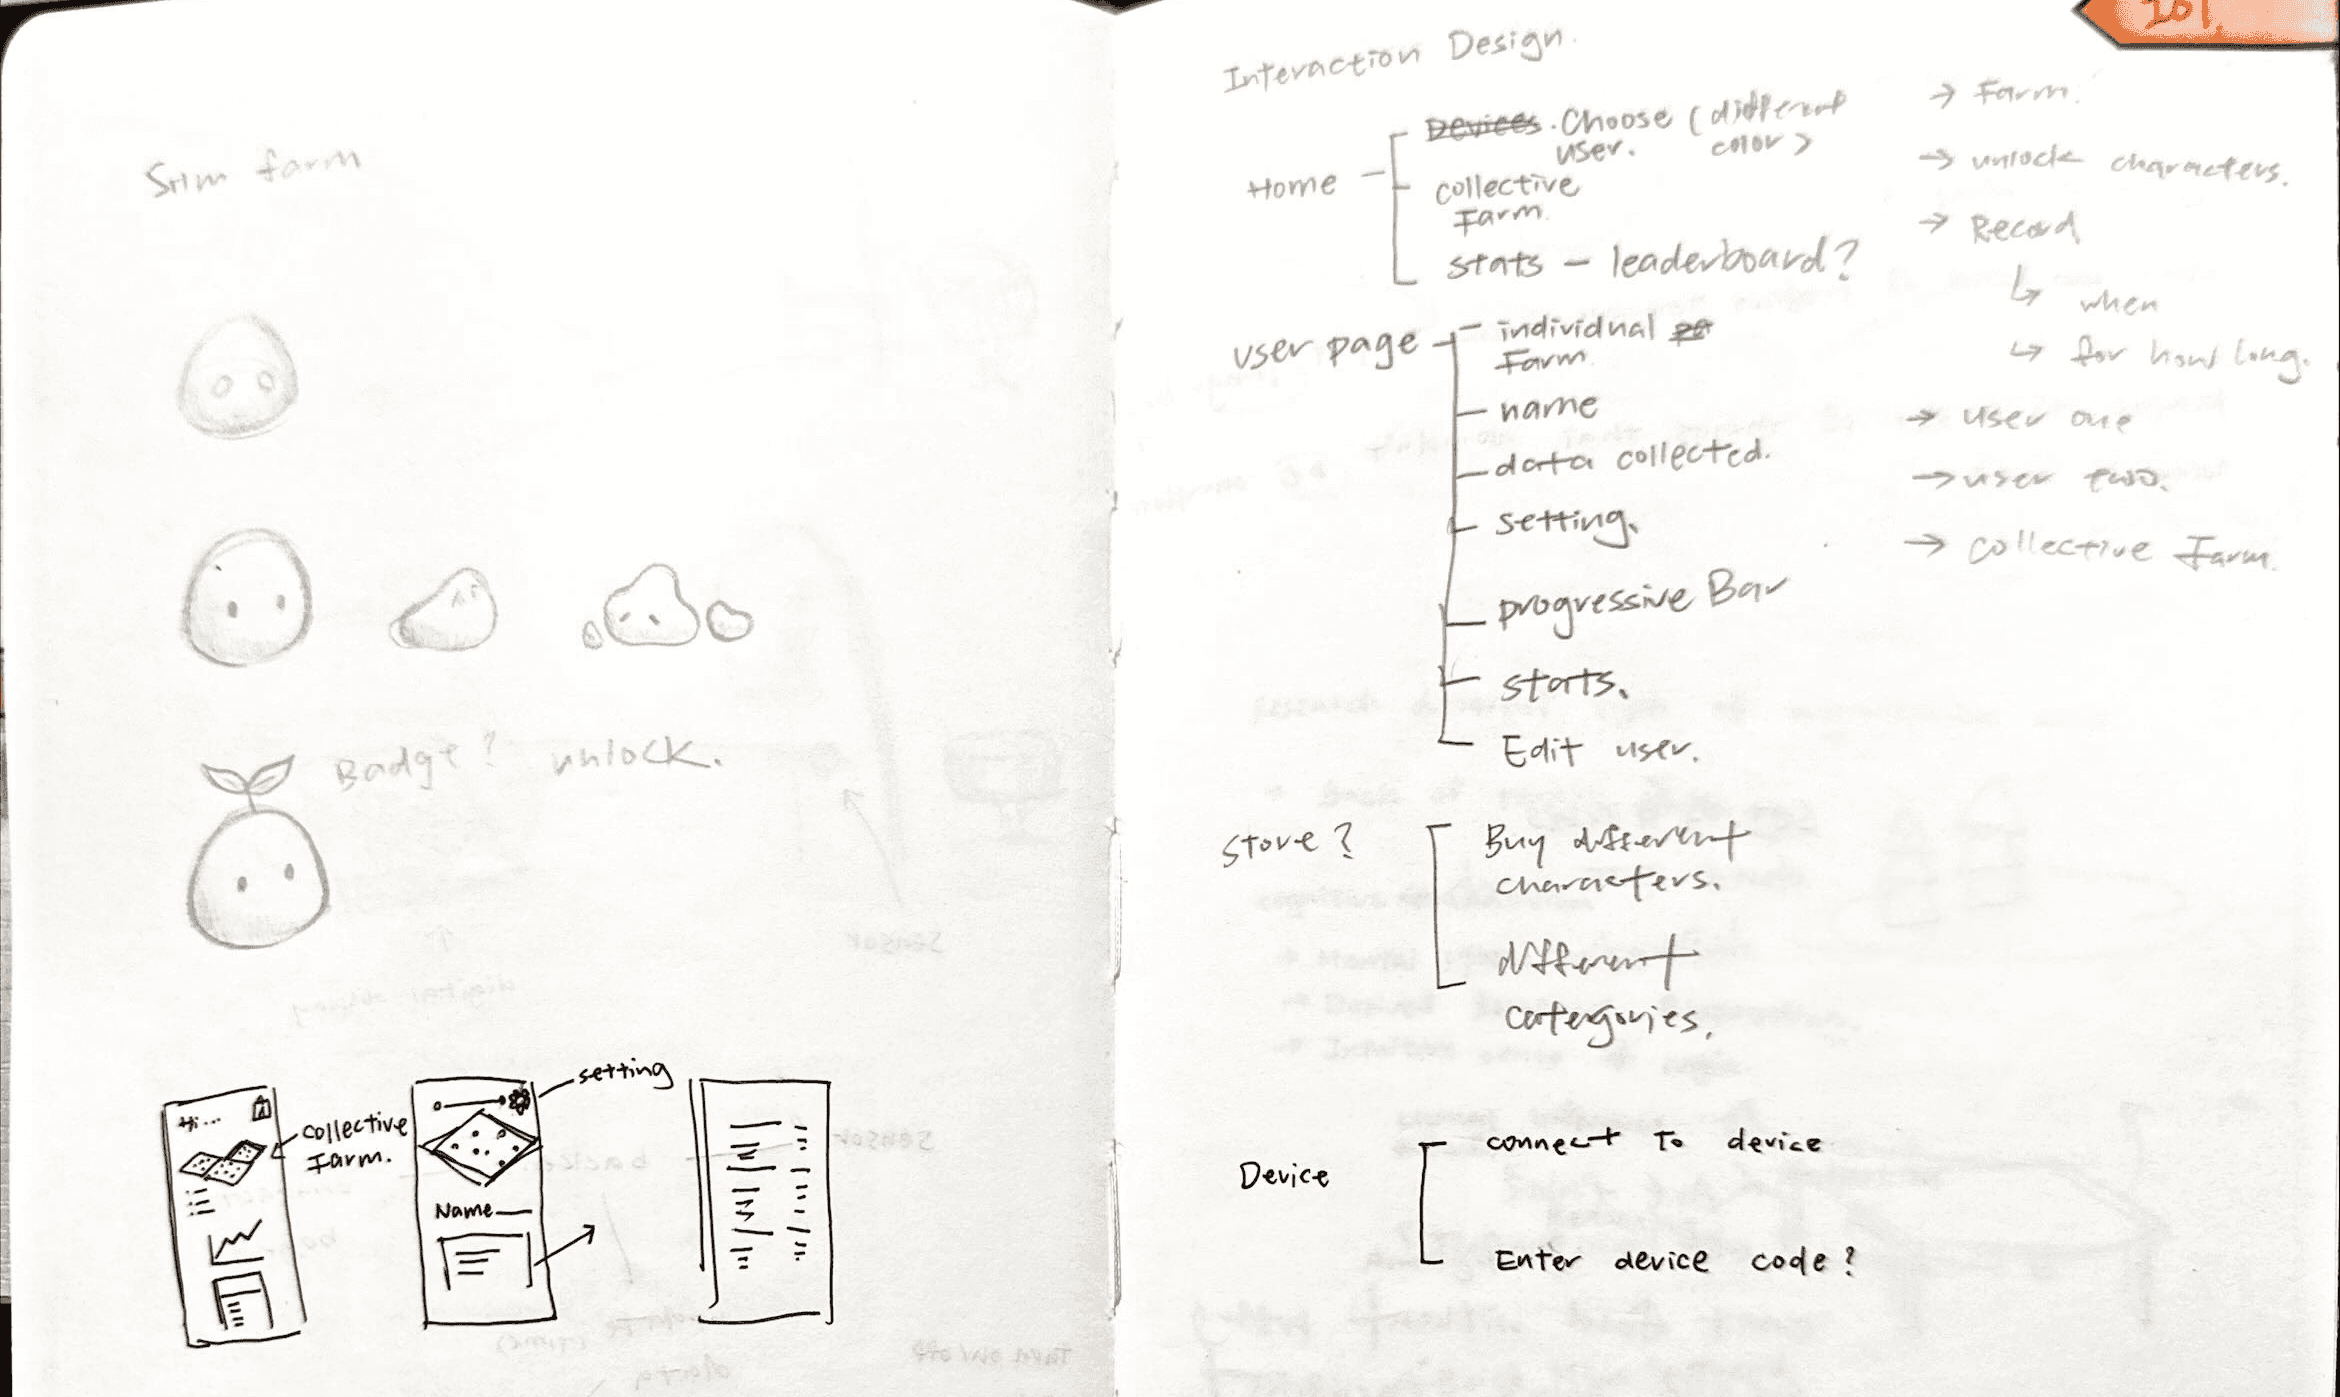 farm
Badge? unlock.
Hi...
collective
Farm.
setting
Name
201
Interaction Design.
Home
Devices. Choose (different
user. color)
collective
Farm.
stats - leaderboard?
user page
individual
Farm.
name
data collected.
setting.
progressive Bar
stats.
Edit user.
→ Farm.
→ unlock characters.
→ Record
↳ when
↳ for how long.
→ user one
→ user two.
→ collective Farm.
store?
Buy different
characters.
different
catergories.
Device
connect To device
Enter device code?